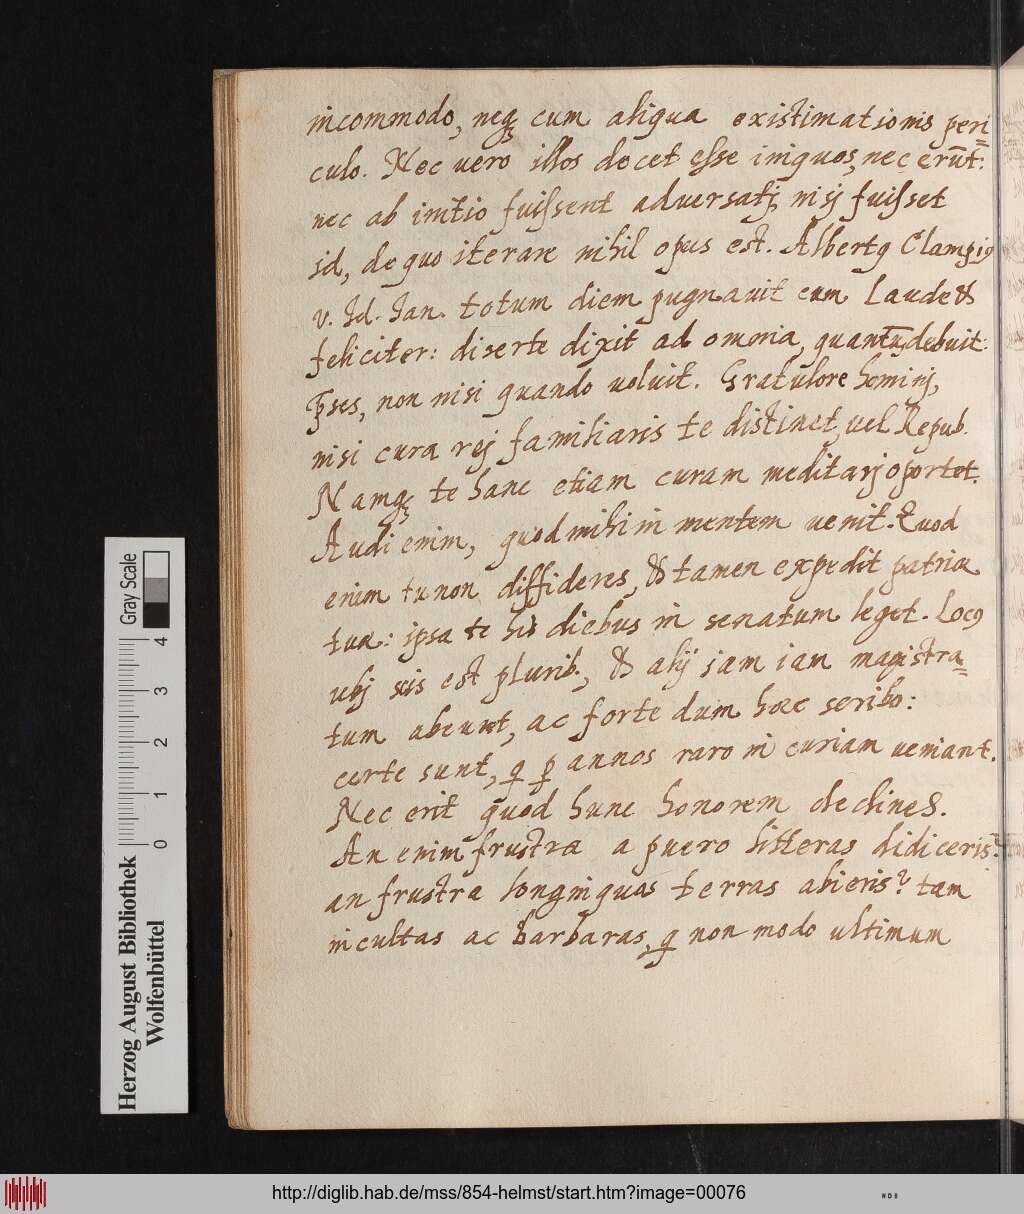 incommodo, neqꝫ cum aliqua existimationis peri=
culo. Nec vero illos decet esse iniquos, nec erūt:
nec ab initio fuissent adversatj, nisj fuisset
id, de quo iterare nihil opus est. Albertꝰ Clampiꝰ
v. Id. Ian. totum diem pugnavit cum laude &
feliciter: diserte dixit ad omnia, quantū debuit:
non nisi quando voluit. Gratulore hominj,
nisi cura rej familiaris te distinet, vel Repub.
Namqꝫ te hanc etiam curam meditarj oportet.
Audi enim, quod mihi in mentem venit. Quod
enim tu non diffideres, & tamen expedit patriæ
tuæ: ipsa te his diebus in senatum leget. Locꝰ
ubj sis est plurib., & alij jam iam magistra=
tum abeunt, ac forte dum hæc scribo:
certe sunt, q ꝑ annos raro in curiam veniant.
Nec erit quod hunc honorem declines.
An enim frustra a puero litteras didiceris?
an frustra longinquas terras abieris? tam
incultas ac barbaras, q non modo ultimum
Herzog August Bibliothek
Wolfenbüttel
0 1 2 3 4
Gray Scale
http://diglib.hab.de/mss/854-helmst/start.htm?image=00076
WDB